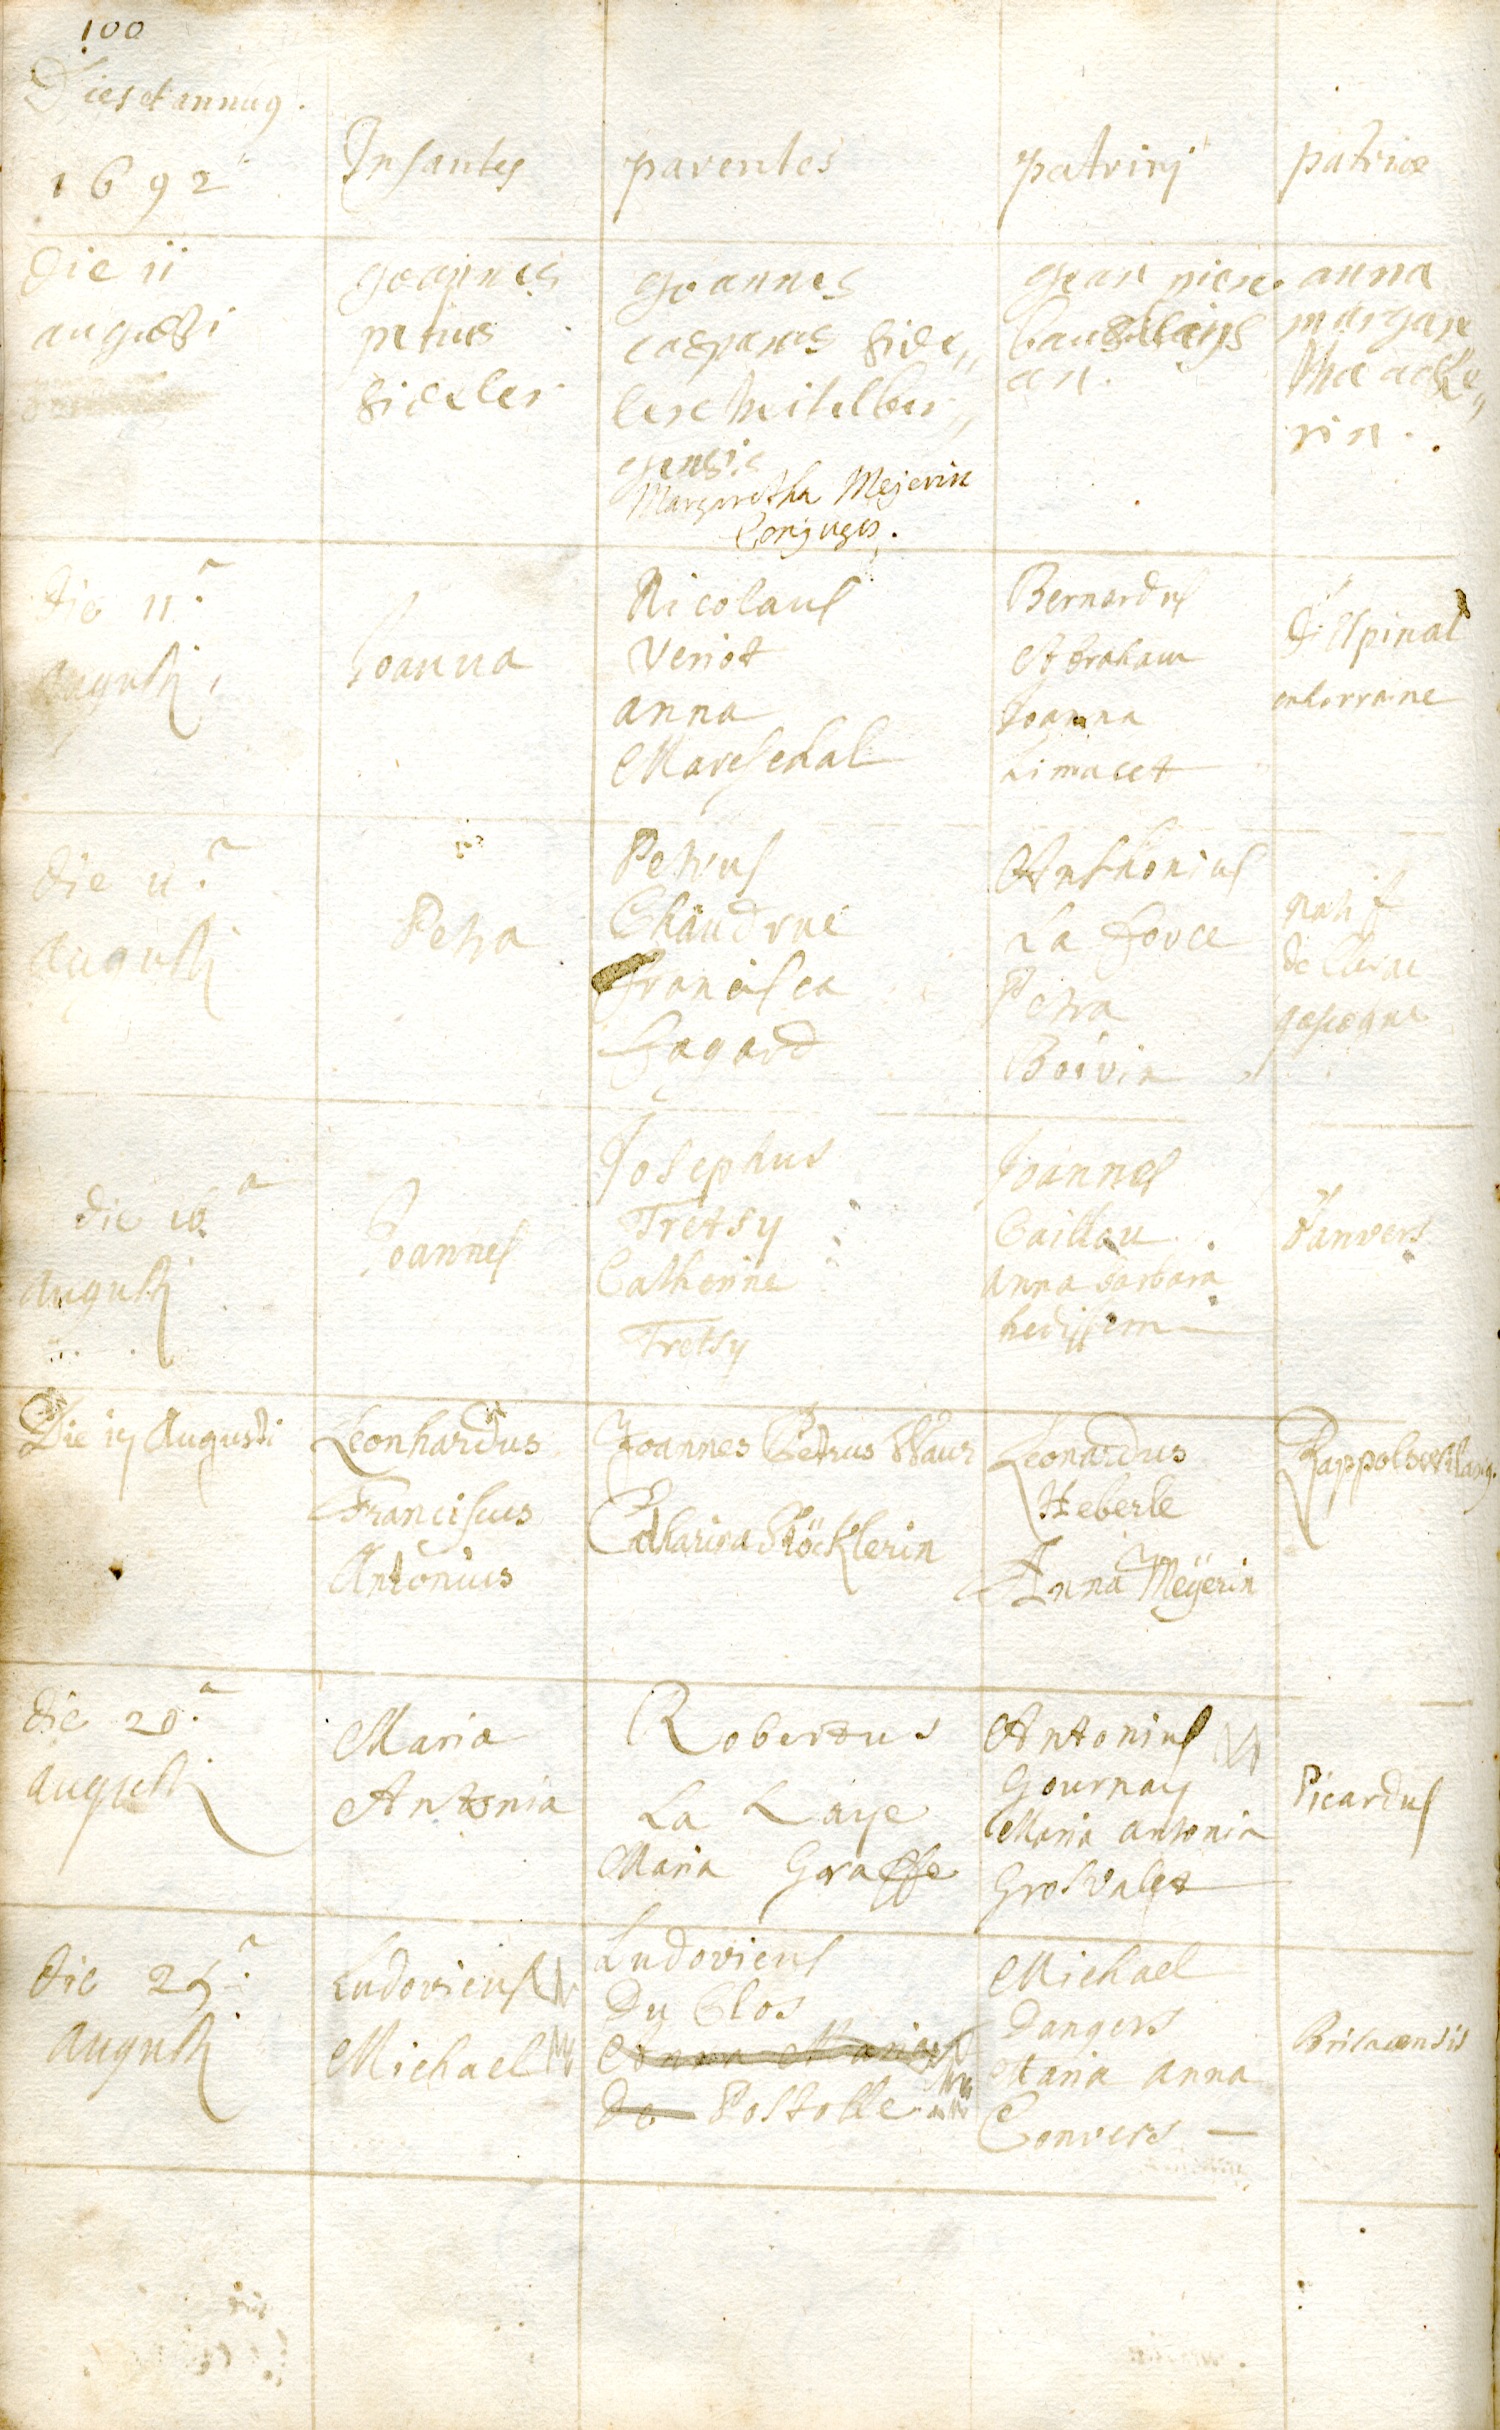 100
Dies et annus.
1692
Infantes
parentes
patrinj
patriæ
die 11
augusti
goannes
petrus
sideler
goannes
casparus side„
ler
gensis
Margaretha Mejerin
Conjuges.
gean piere
anna
margare
tha acke„
rin.
die 11.a
Augusti,
Joanna
Nicolaus
Veriot
anna
Mareschal
Bernardus
Abraham
Joanna
Limacet
d'Epinal
en Lorraine
die 11.a
Augusti
Petra
Petrus
Chaudrue
Francisca
Lagard
Anthonius
La Force
Petra
Boivin
natif
de
gascogne
die 16.a
Augusti
Joannes
Josephus
Tretsy
Catherine
Tretsy
Joannes
Caillou
Anna barbara
d'anvers
Die 17 Augusti
Leonhardus
Franciscus
Antonius
Joannes Petrus Waur
Catharina Stöcklerin
Leonardus
Heberle
Anna Meÿerin
die 20.a
Augusti
Maria
Antonia
Robertus
La Laye
Maria Graffe
Antonius
Gournay
Maria antonia
Grosvalet
Picardus
die 25.a
Augusti
Ludovicus
Michael
Ludovicus
Du Clos
Anna Maria
De Postolle
Michael
Dangers
Maria anna
Convers —
Brisacensis